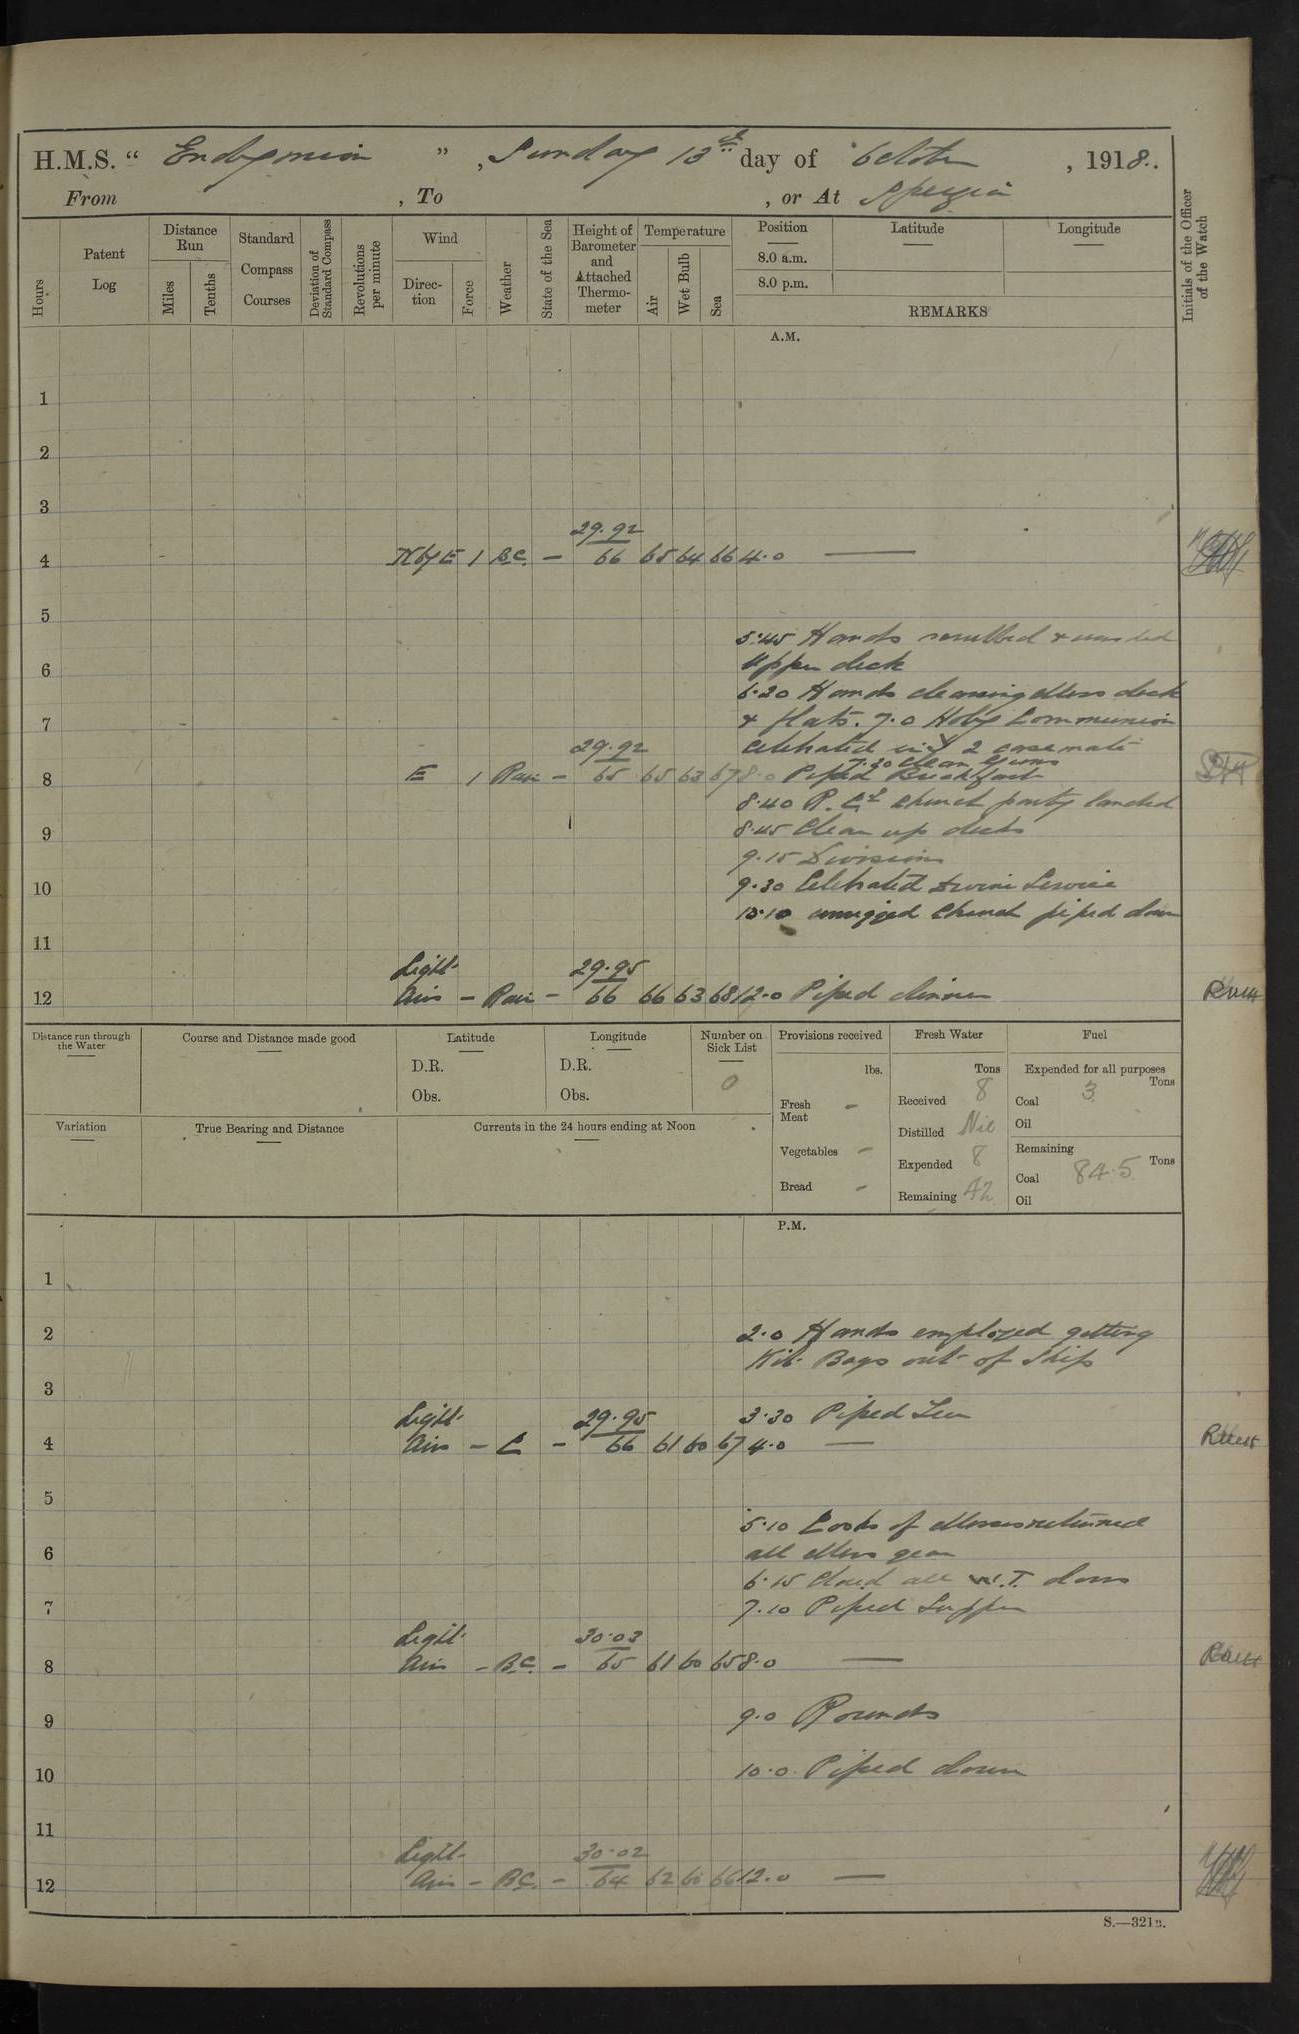 H.M.S. “ Endymion ” , Sunday 13th day of October , 1918.
From , To , or At Spezia
Hours
Patent Log
Distance Run
Miles
Tenths
Standard Compass Courses
Deviation of Standard Compass
Revolutions per minute
Wind
Direction
Force
Weather
State of the Sea
Height of Barometer and Attached Thermometer
Temperature
Air
Wet Bulb
Sea
Position
8.0 a.m.
8.0 p.m.
Latitude
Longitude
REMARKS
Initials of the Officer of the Watch
A.M.
1
2
3
29.92
4 N by E 1 B.C. — 66 65 64 66 4.0 —
5
5.45 Hands scrubbed & washed
6 Upper deck
6.20 Hands cleaning Mess deck
7 & flats. 7.0 Holy Communion
29.92 celebrated in 2 casemate
7.30 Clean Guns
8 E 1 Rain — 65 65 63 67 8.0 Piped Breakfast
8.40 R.Cs Church party landed
9 8.45 Clean up decks
9.15 Divisions
10 9.30 Celebrated Divine Service
10.10 unrigged Church piped down
11
Light 29.95
12 Airs — Rain — 66 66 63 68 12.0 Piped dinner
Distance run through the Water
Course and Distance made good
Latitude
D.R.
Obs.
Longitude
D.R.
Obs.
Number on Sick List
0
Provisions received
lbs.
Fresh Meat —
Vegetables —
Bread —
Fresh Water
Tons
Received 8
Distilled Nil
Expended 8
Remaining 42
Fuel
Expended for all purposes
Tons
Coal 3
Oil
Remaining
Tons
Coal 84.5
Oil
Variation
True Bearing and Distance
Currents in the 24 hours ending at Noon
P.M.
1
2 2.0 Hands employed getting
Kit Bags out of Ship
3
Light 29.95 3.30 Piped Tea
4 Airs — C — 66 61 60 67 4.0 —
5
5.10 Cooks of Messes returned
6 all Mess gear
6.15 Closed all W.T. doors
7 7.10 Piped Supper
Light 30.03
8 Airs — B.C. — 65 61 60 65 8.0 —
9 9.0 Rounds
10 10.0 Piped down
11
Light 30.02
12 Airs — B.C. — 64 62 60 66 12.0 —
S.—321B.